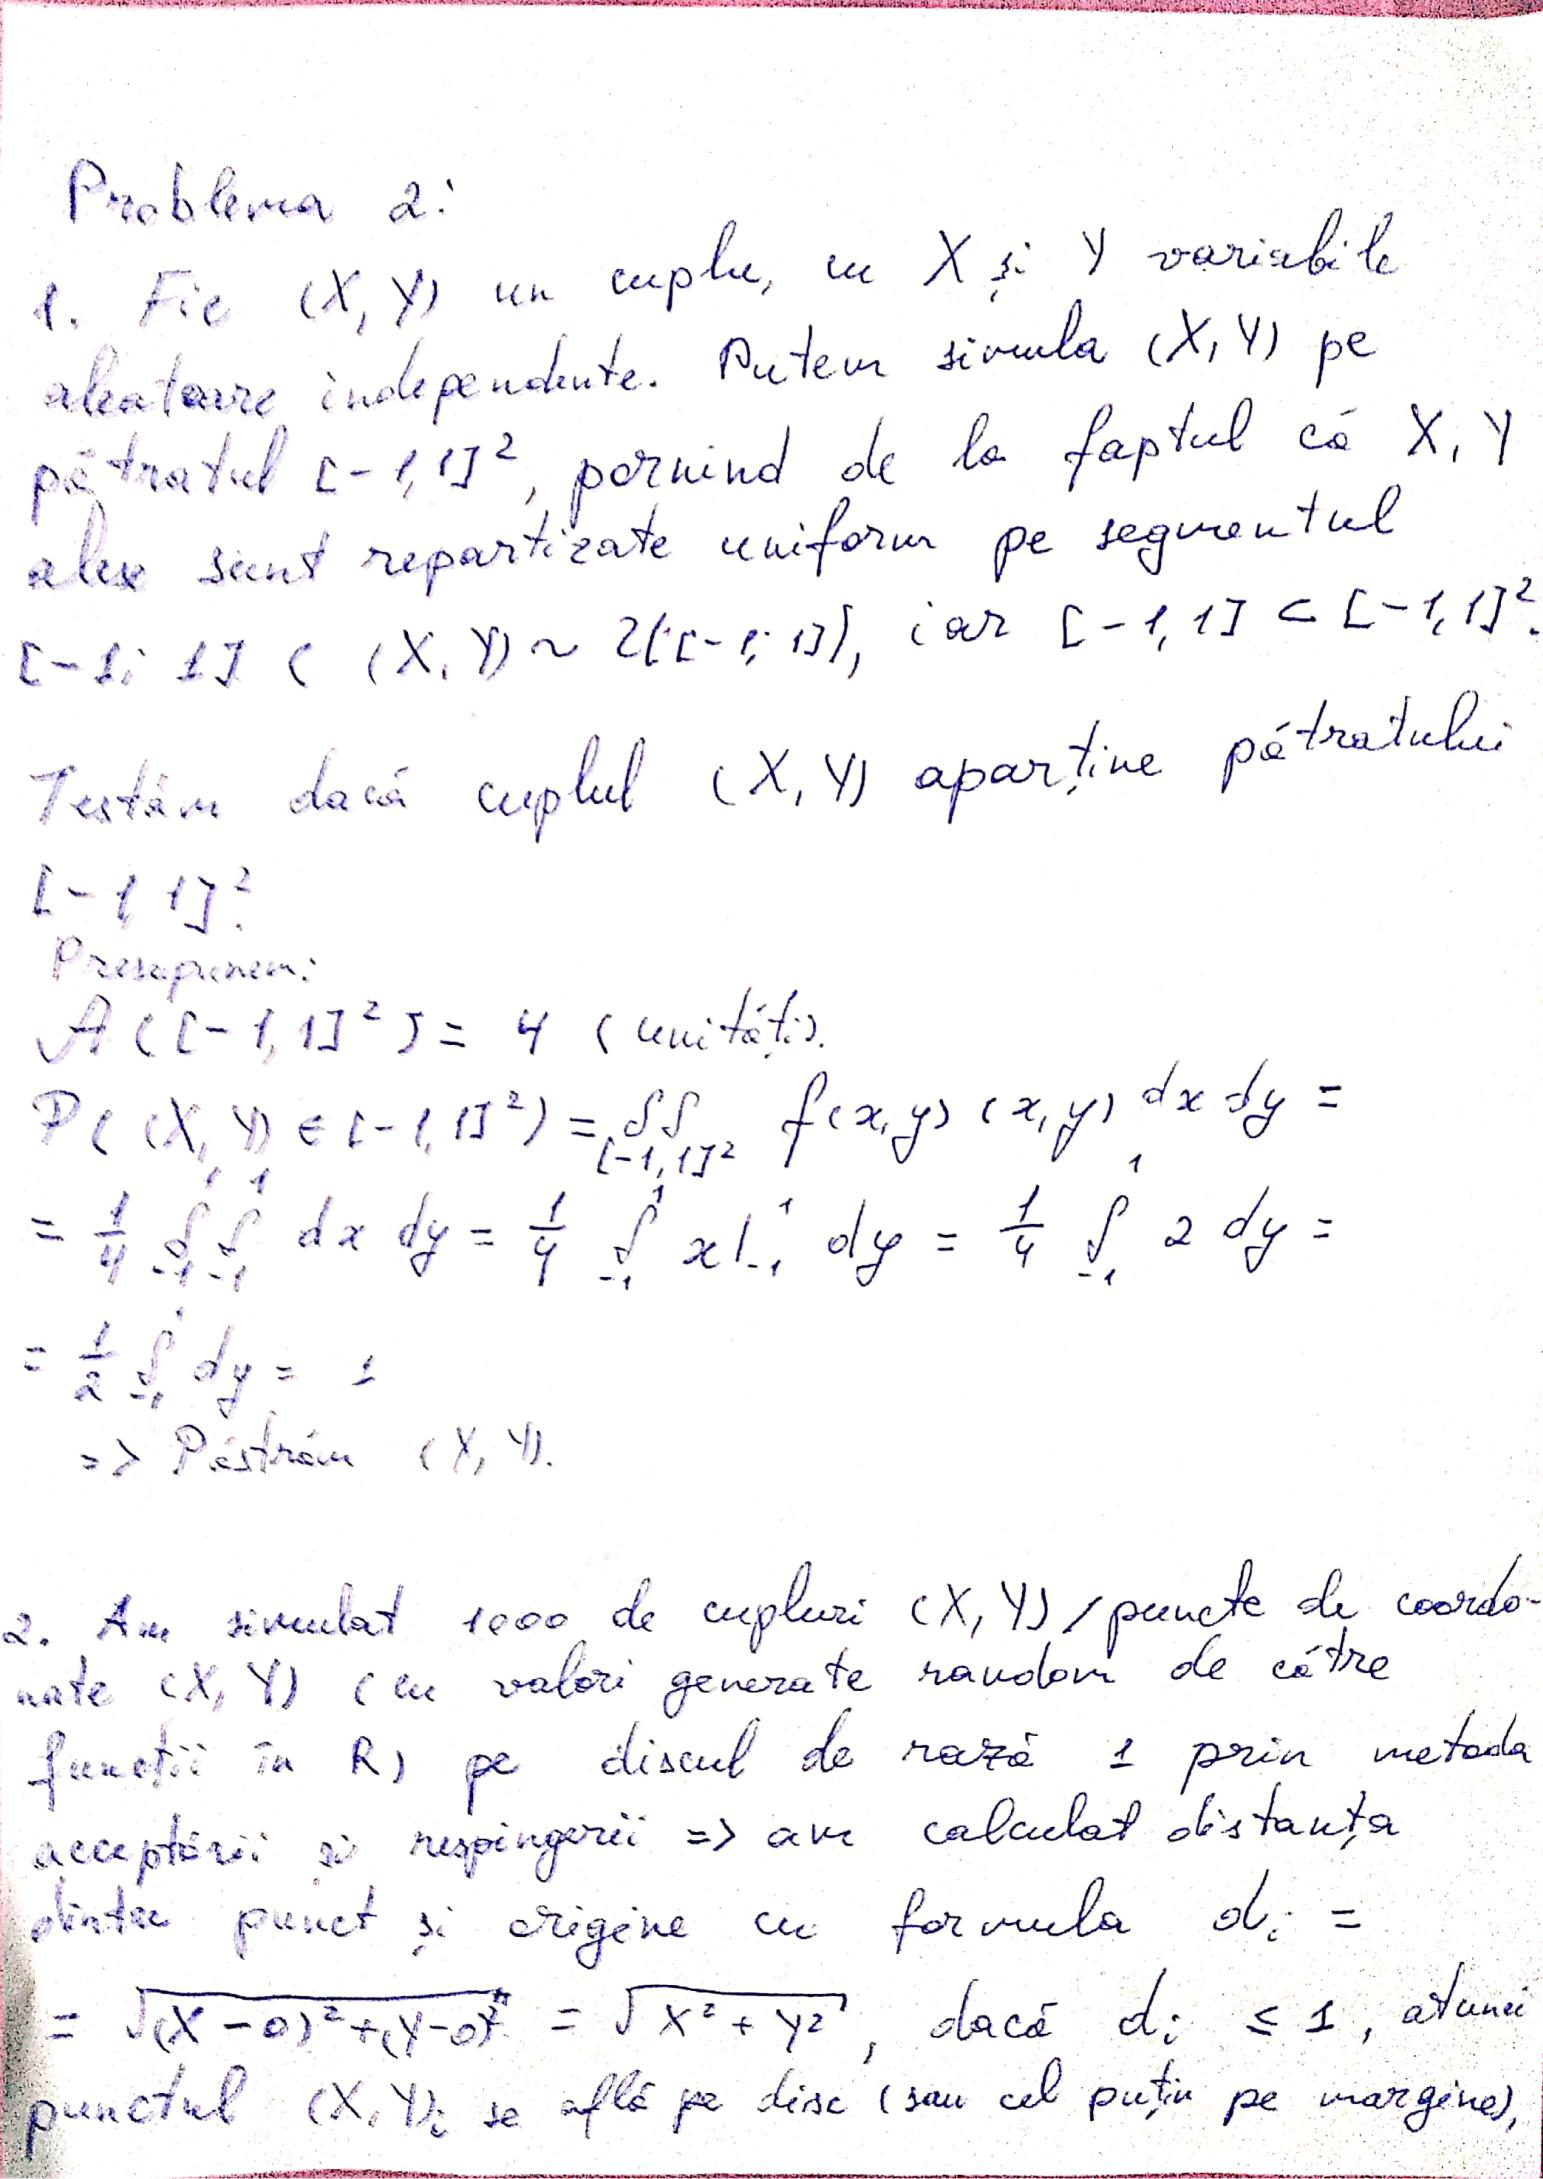 Problema 2:
1. Fie (X, Y) un cuplu, cu X și Y variabile
aleatoare independente. Putem simula (X, Y) pe
pătratul [-1, 1]², pornind de la faptul că X, Y
sunt repartizate uniform pe segmentul
[-1; 1] ( (X, Y) ~ U([-1; 1]), iar [-1, 1] ⊂ [-1, 1]².
Testăm dacă cuplul (X, Y) aparține pătratului
[-1, 1]².
Presupunem:
A([-1, 1]²) = 4 (unități).
P((X, Y) ∈ [-1, 1]²) = ∫∫_{[-1, 1]²} f(x, y) (x, y) dx dy =
= 1/4 ∫_{-1}^{1} ∫_{-1}^{1} dx dy = 1/4 ∫_{-1}^{1} x|_{-1}^{1} dy = 1/4 ∫_{-1}^{1} 2 dy =
= 1/2 ∫_{-1}^{1} dy = 1
=> Păstrăm (X, Y).
2. Am simulat 1000 de cupluri (X, Y) / puncte de coordo-
nate (X, Y) (cu valori generate random de către
funcții în R) pe discul de rază 1 prin metoda
acceptării și respingerii => am calculat distanța
dintre punct și origine cu formula d_i =
= √((X-0)²+(Y-0)²) = √(X² + Y²), dacă d_i ≤ 1, atunci
punctul (X, Y)_i se află pe disc (sau cel puțin pe margine),